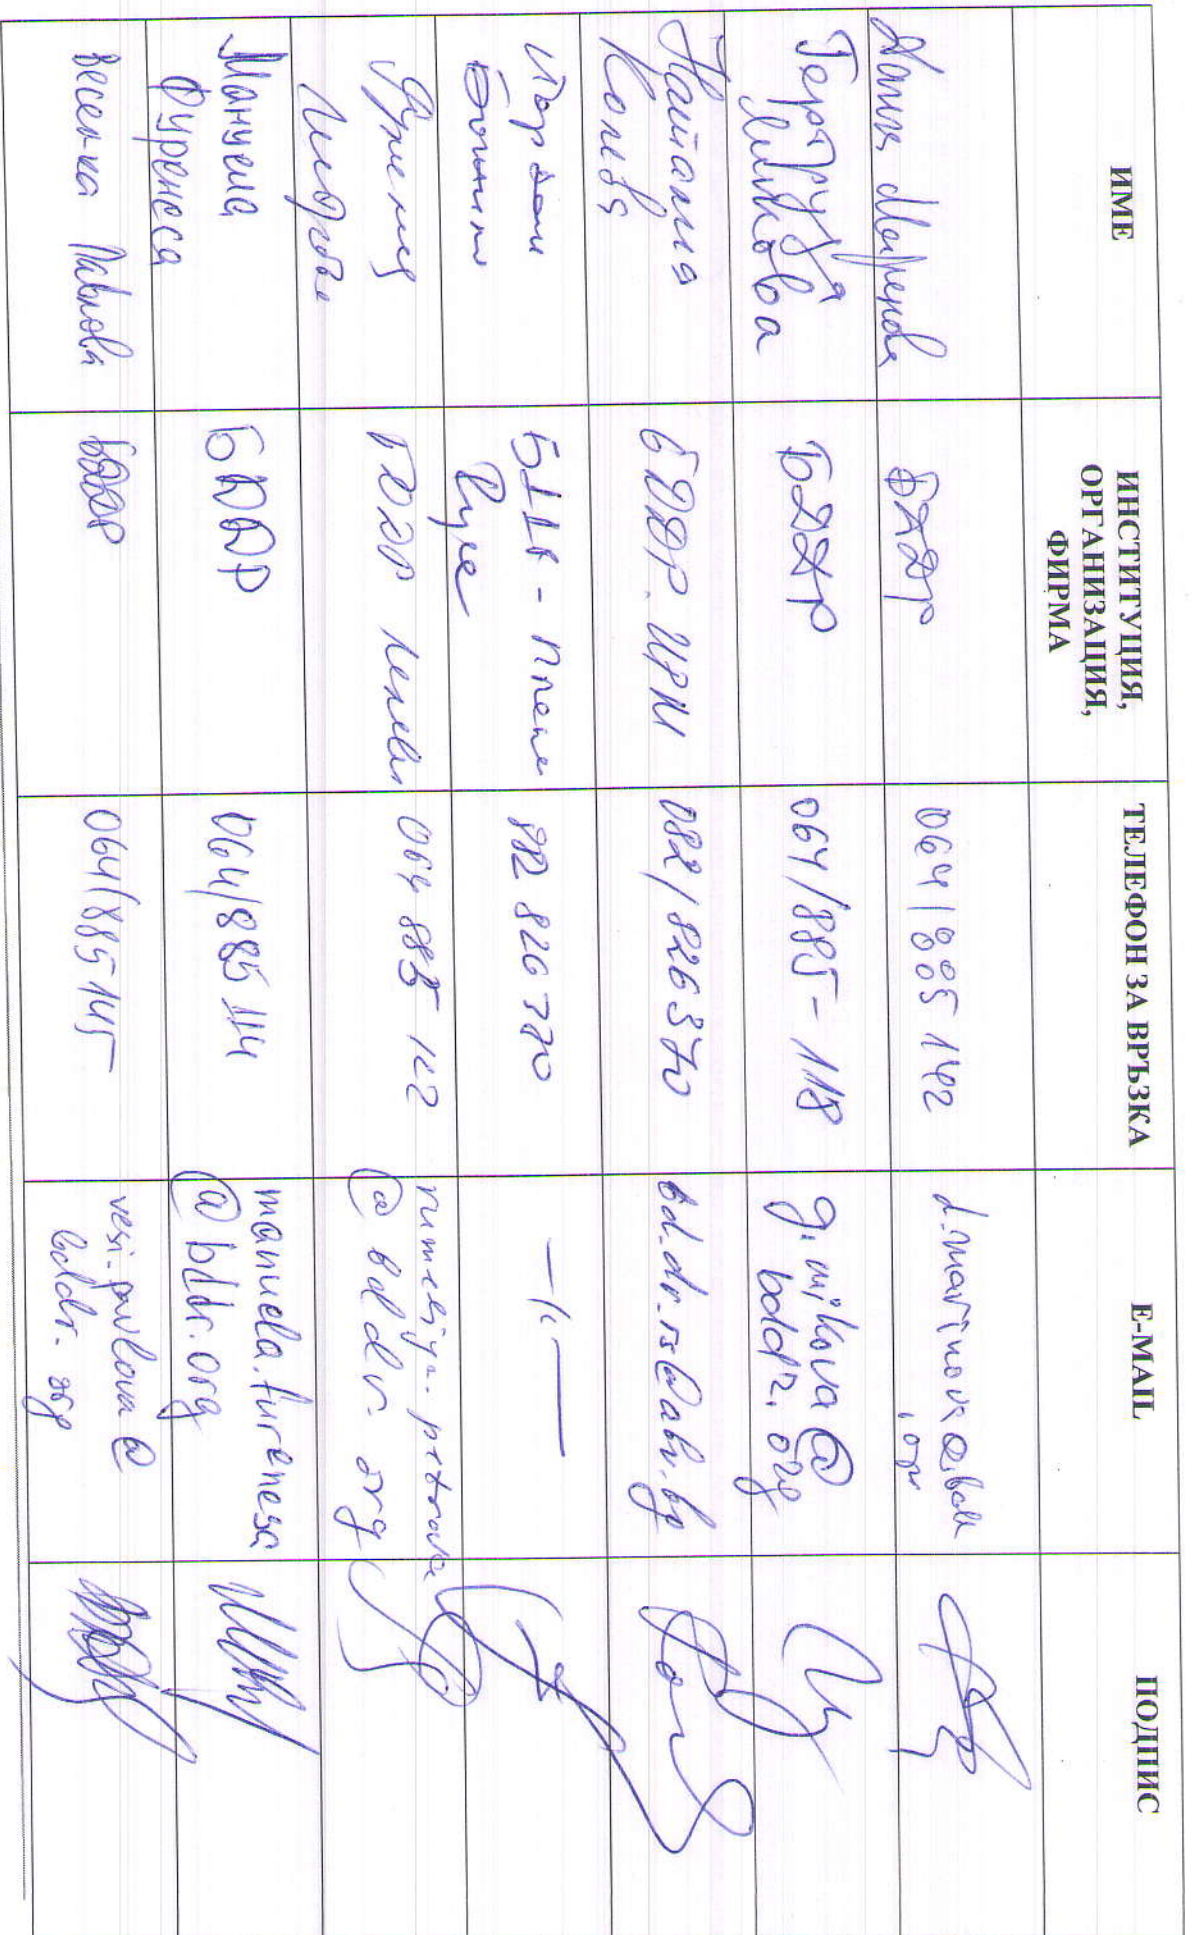 ИМЕ
ИНСТИТУЦИЯ,
ОРГАНИЗАЦИЯ,
ФИРМА
ТЕЛЕФОН ЗА ВРЪЗКА
E-MAIL
ПОДПИС
БДДР
064/885 142
d.marinova@
.org
Гертруда
Микова
БДДР
064/885-118
g.mikova@
bddr.org
Наталия
БДДР
bd.dr.rs@abv.bg
Йордан
Русе
082 826 770
- // -
Румелия
БДДР Плевен
064 885 142
rumeliya.petrova
@bddr.org
Мануела
Фуренеса
БДДР
064/885 114
manuela.fureneza
@bddr.org
Веселка Павлова
БДДР
064/885145
vesi.pavlova@
bddr.org